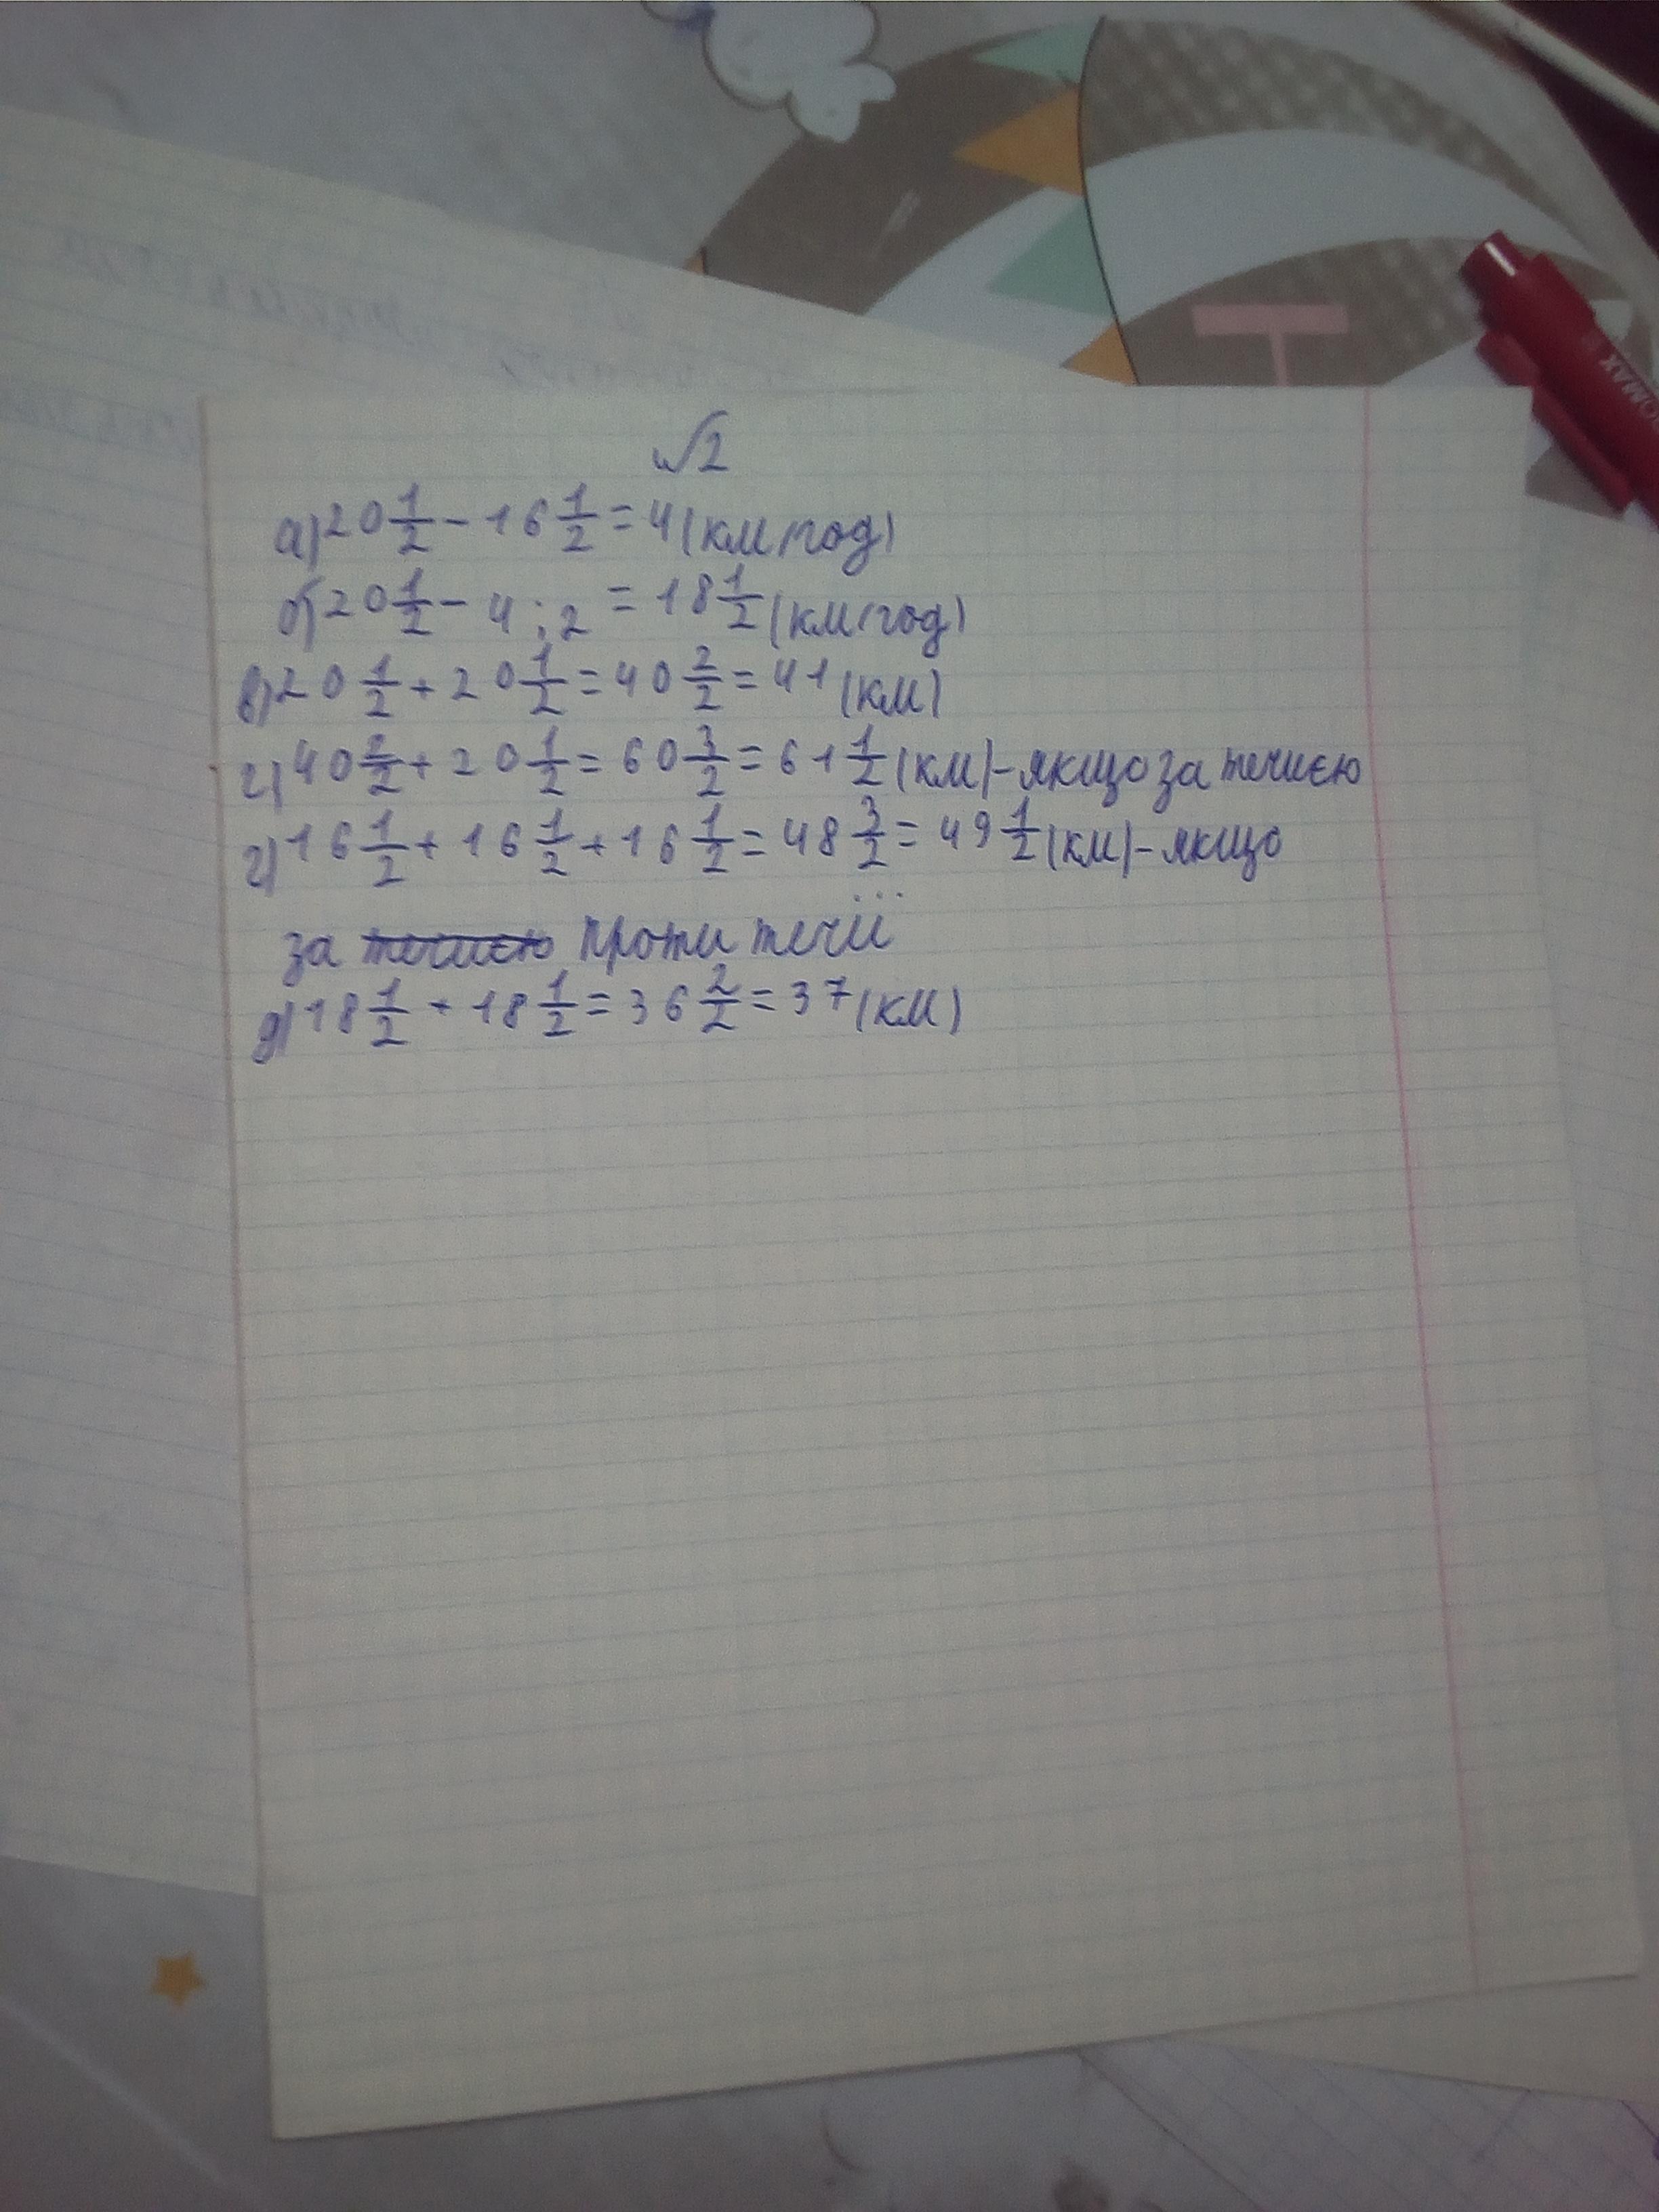 №2
а) 20 1/2 - 16 1/2 = 4 (км/год)
б) 20 1/2 - 4 : 2 = 18 1/2 (км/год)
в) 20 1/2 + 20 1/2 = 40 2/2 = 41 (км)
г) 40 2/2 + 20 1/2 = 60 3/2 = 61 1/2 (км) - якщо за течією
г) 16 1/2 + 16 1/2 + 16 1/2 = 48 3/2 = 49 1/2 (км) - якщо
за течією проти течії
д) 18 1/2 + 18 1/2 = 36 2/2 = 37 (км)